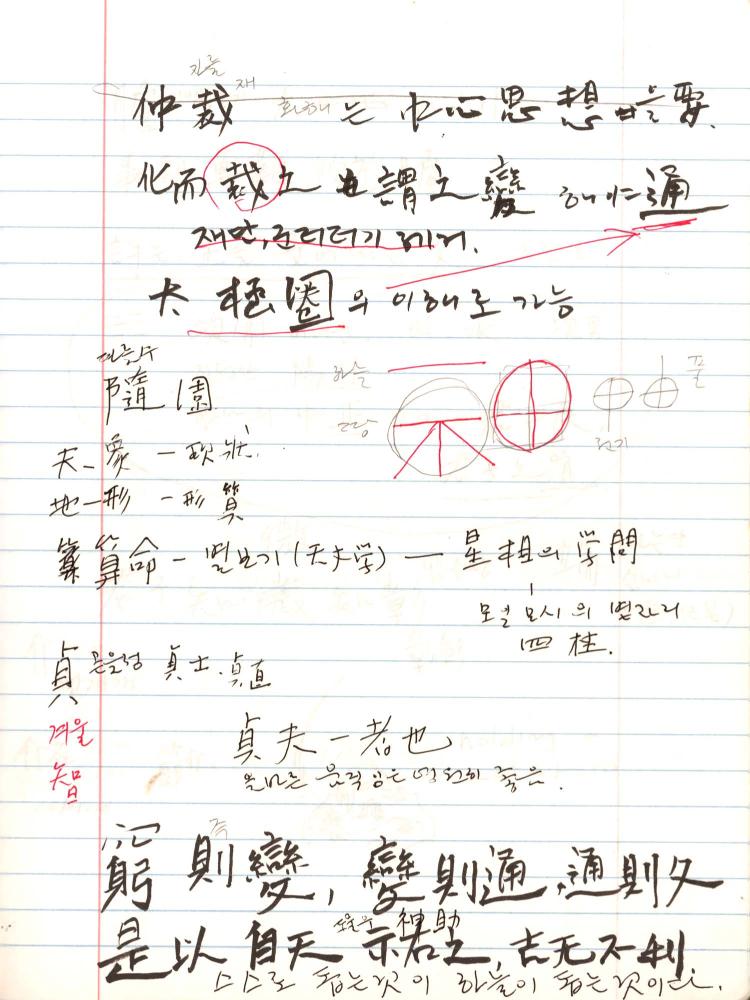 지를
재
仲裁 화해 는 中心思想 必要.
化而裁之 謂之變 해야 通
재만, 울타리 제거.
太極圈의 이해로 가능
따를수
隨園
하늘
땅
풀
전기
天 - 象 - 現狀
地 - 形 - 形算
算命 - 별보기 (天文学) — 星相의 学問
모년 모시의 별자리
四柱.
貞 곧을정 貞士·貞直
겨울
智
貞夫一者也
올바른 움직임은 영원히 좋음.
즉
窮則變, 變則通, 通則久
도울우 神助
是以 自天祐之, 吉无不利
스스로 돕는것이 하늘이 돕는것이다.